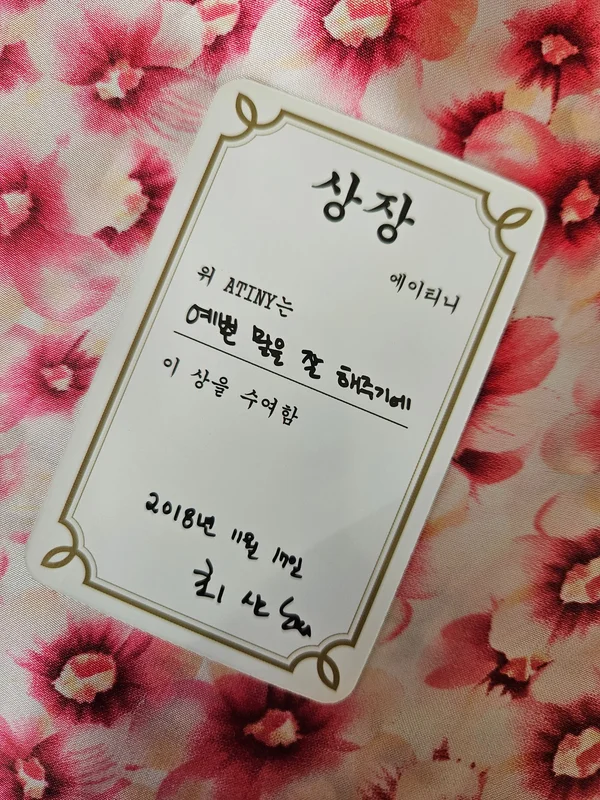 상장
에이티니
위 ATINY는
예쁜 말을 잘 해주기에
이 상을 수여함
2018년 11월 17일
최 산